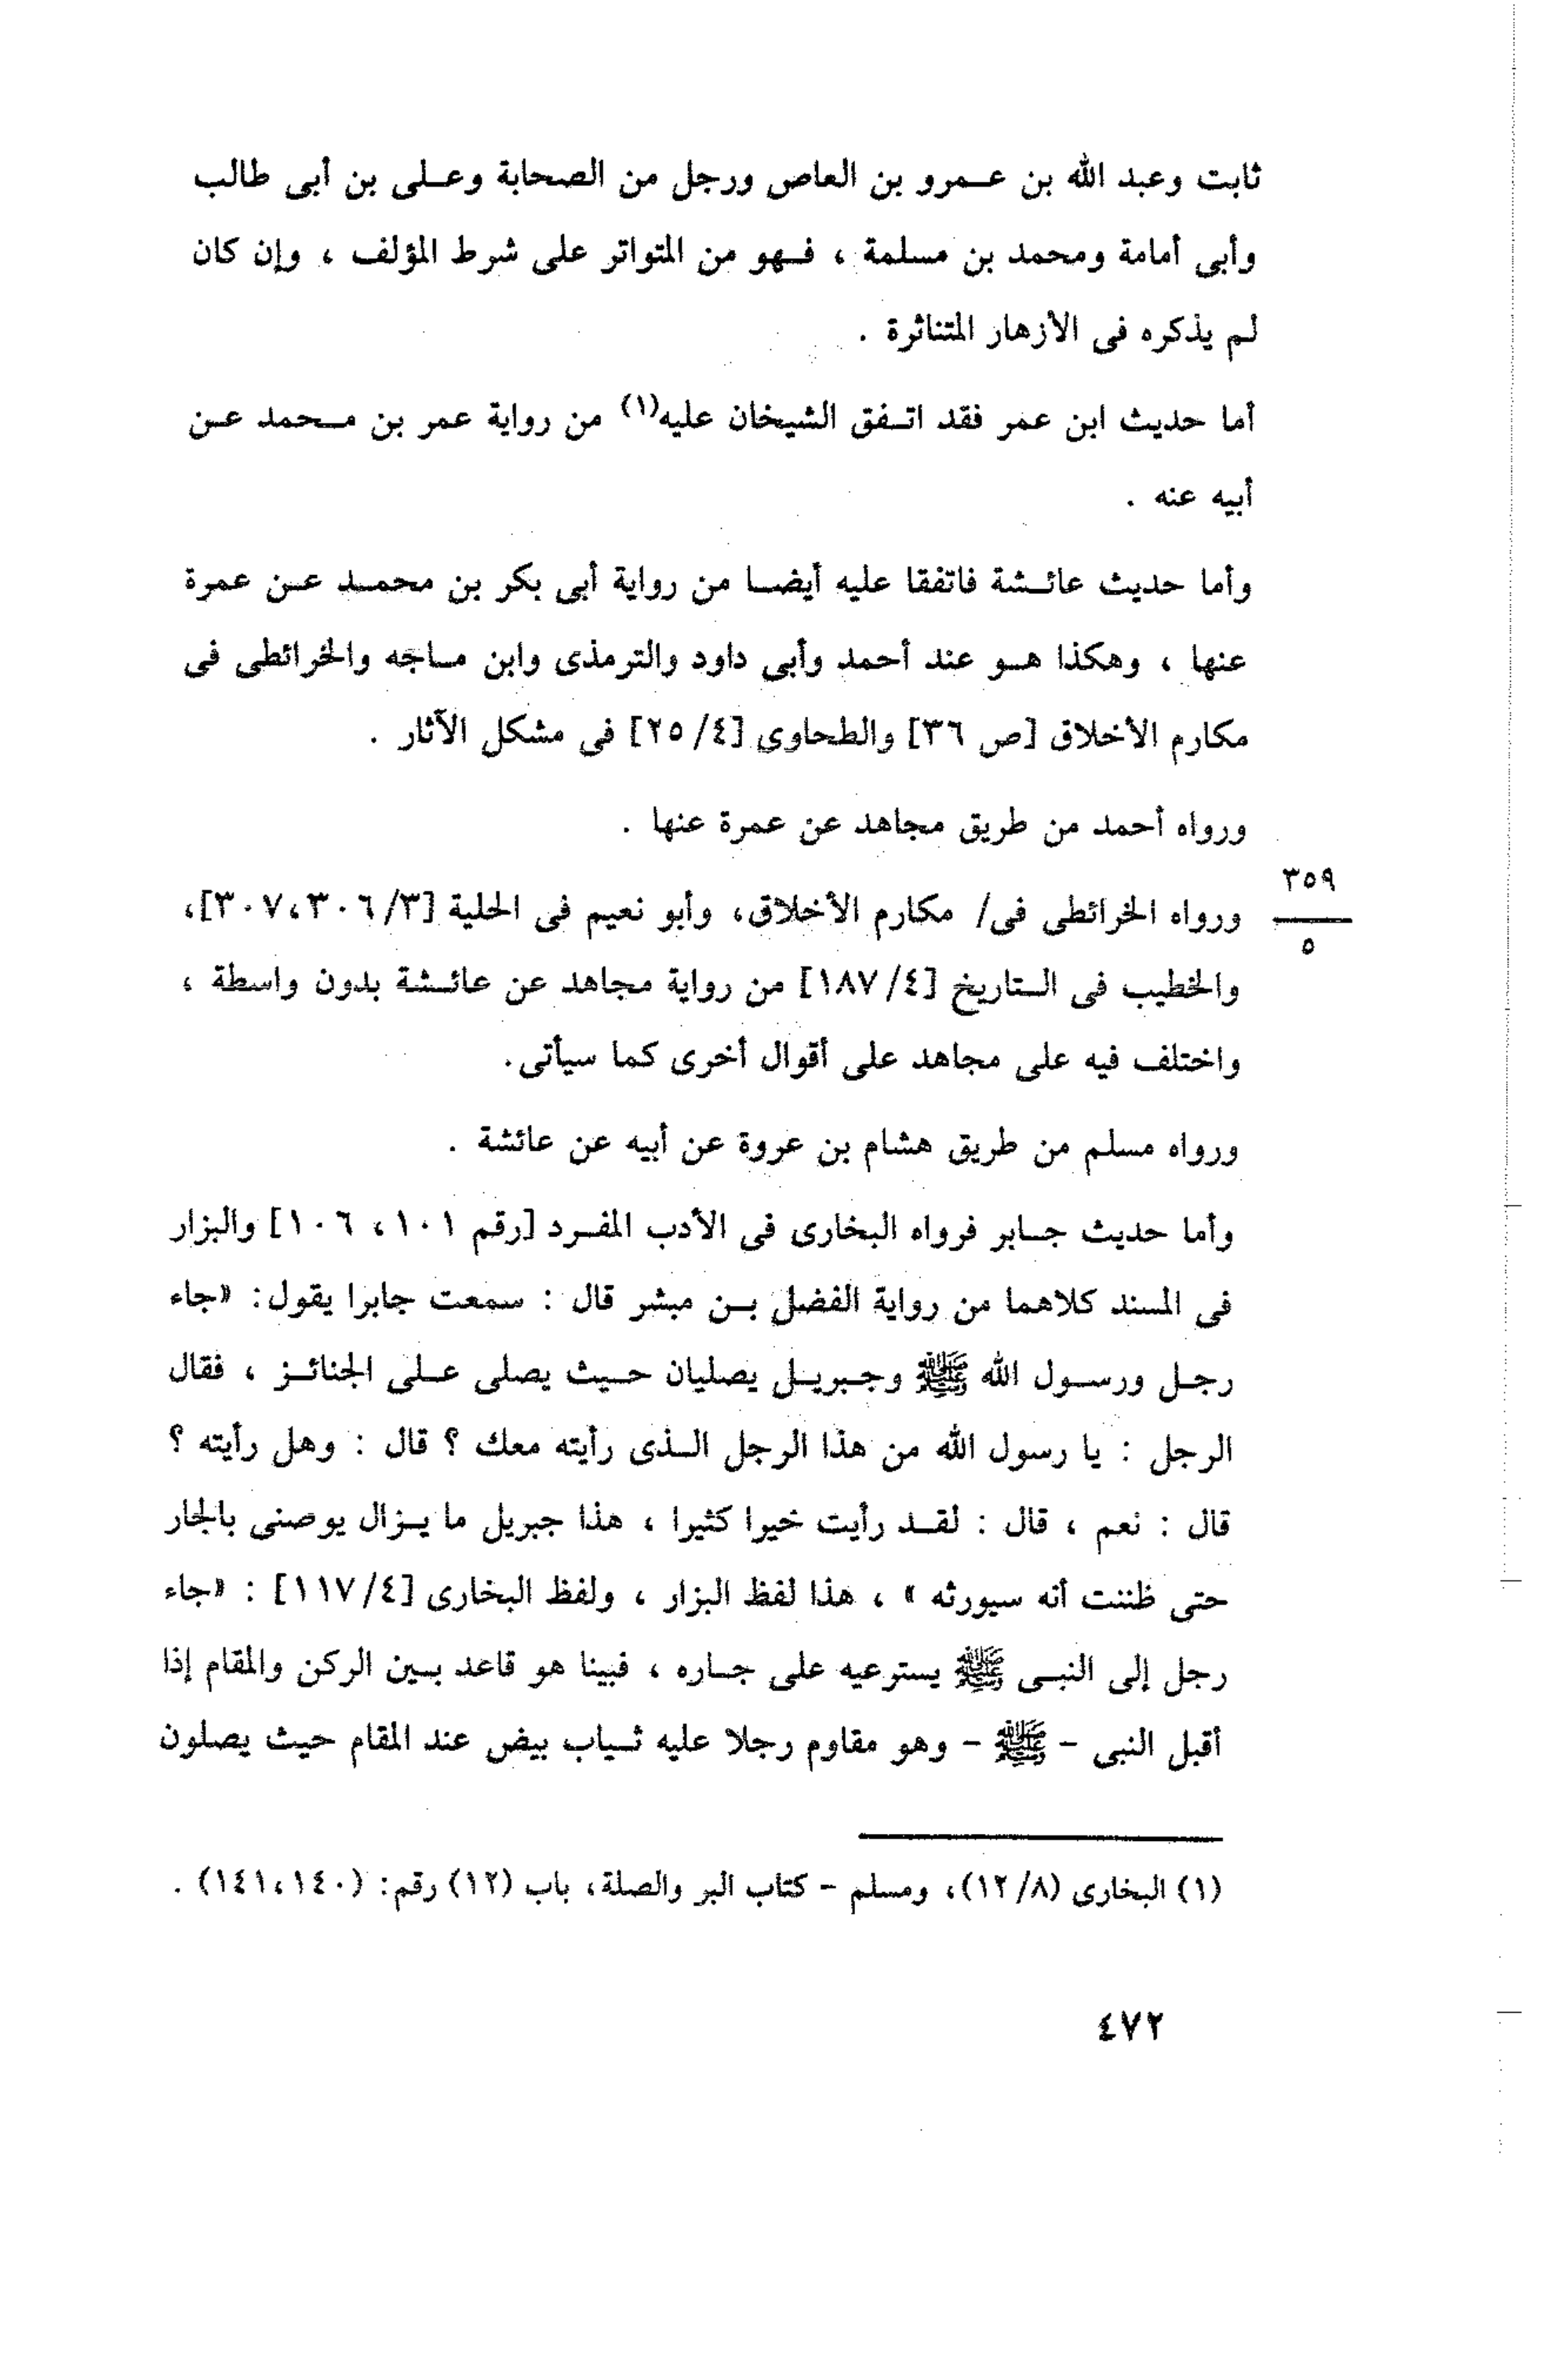 ثابت وعبد الله بن عمرو بن العاص ورجل من الصحابة وعلى بن أبى طالب
وأبى أمامة ومحمد بن مسلمة ، فهو من المتواتر على شرط المؤلف ، وإن كان
لم يذكره فى الأزهار المتناثرة .
أما حديث ابن عمر فقد اتفق الشيخان عليه(١) من رواية عمر بن محمد عن
أبيه عنه .
وأما حديث عائشة فاتفقا عليه أيضا من رواية أبى بكر بن محمد عن عمرة
عنها ، وهكذا هو عند أحمد وأبى داود والترمذى وابن ماجه والخرائطى فى
مكارم الأخلاق [ص ٣٦] والطحاوى [٤/ ٢٥] فى مشكل الآثار .
ورواه أحمد من طريق مجاهد عن عمرة عنها .
٣٥٩
ورواه الخرائطى فى/ مكارم الأخلاق، وأبو نعيم فى الحلية [٣/ ٣٠٦،٣٠٧]،
٥
والخطيب فى التاريخ [٤/ ١٨٧] من رواية مجاهد عن عائشة بدون واسطة ،
واختلف فيه على مجاهد على أقوال أخرى كما سيأتى.
ورواه مسلم من طريق هشام بن عروة عن أبيه عن عائشة .
وأما حديث جابر فرواه البخارى فى الأدب المفرد [رقم ١٠١ ، ١٠٦] والبزار
فى المسند كلاهما من رواية الفضل بن مبشر قال : سمعت جابرا يقول: «جاء
رجل ورسول الله ﷺ وجبريل يصليان حيث يصلى على الجنائز ، فقال
الرجل : يا رسول الله من هذا الرجل الذى رأيته معك ؟ قال : وهل رأيته ؟
قال : نعم ، قال : لقد رأيت خيرا كثيرا ، هذا جبريل ما يزال يوصنى بالجار
حتى ظننت أنه سيورثه » ، هذا لفظ البزار ، ولفظ البخارى [٤/ ١١٧] : «جاء
رجل إلى النبى ﷺ يسترعيه على جاره ، فبينا هو قاعد بين الركن والمقام إذا
أقبل النبى - ﷺ - وهو مقاوم رجلا عليه ثياب بيض عند المقام حيث يصلون
(١) البخارى (٨/ ١٢)، ومسلم - كتاب البر والصلة، باب (١٢) رقم: (١٤٠،١٤١) .
٤٧٢